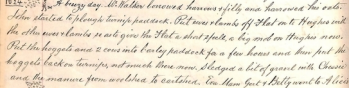 A busy day. Mr Watson borrowed harrows & filly and harrowed the oats.
John started to plough turnip paddock. Put ewes & lambs off Flat onto Hughes with
the other ewes & lambs so as to give the Flat a short spell, a big mob on Hughes now.
Put the hoggets and 2 cows into barley paddock for a few hours and then put the
hoggets back on turnips, not much there now. Sledged a bit of gravel with Chassie
and the manure from woolshed to cartshed. Eva, Mum, Gert & Betty went to Alice